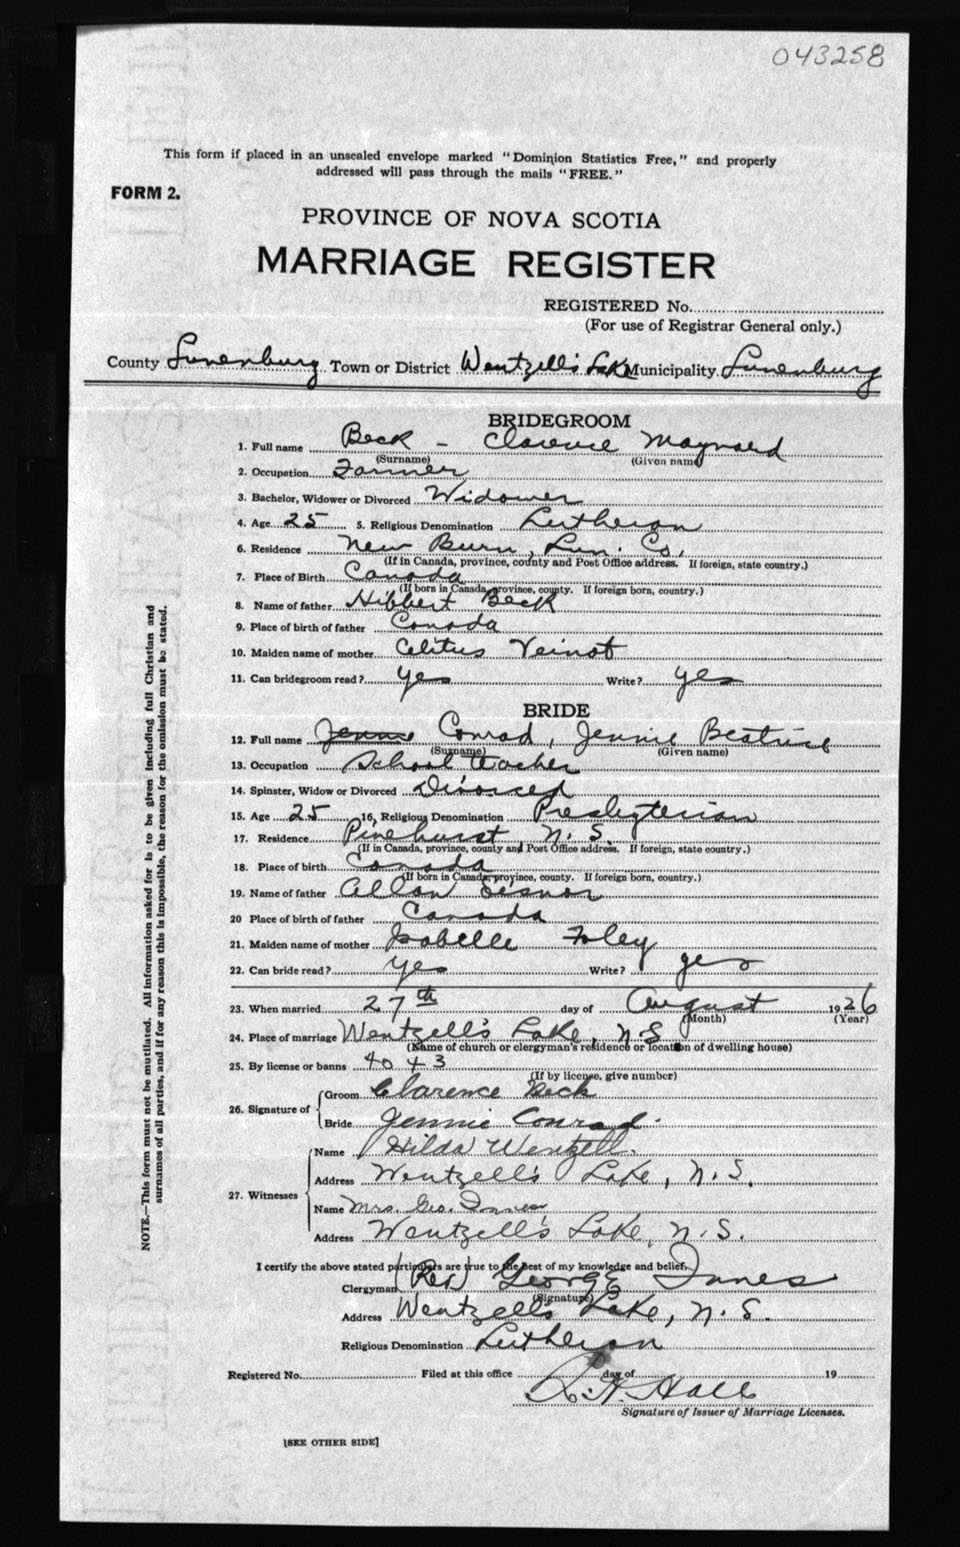 043258
This form if placed in an unsealed envelope marked "Dominion Statistics Free," and properly
addressed will pass through the mails "FREE."
FORM 2.
PROVINCE OF NOVA SCOTIA
MARRIAGE REGISTER
REGISTERED No.
(For use of Registrar General only.)
County Lunenburg Town or District Wentzell's Lake Municipality Lunenburg
BRIDEGROOM
1. Full name Beck - Clarence Maynard
(Surname) (Given name)
2. Occupation Farmer
3. Bachelor, Widower or Divorced Widower
4. Age 25 5. Religious Denomination Lutheran
6. Residence New Burn, Lun. Co.
(If in Canada, province, county and Post Office address. If foreign, state country.)
7. Place of Birth Canada
(If born in Canada, province, county. If foreign born, country.)
8. Name of father Hibbert Beck
9. Place of birth of father Canada
10. Maiden name of mother Veinot
11. Can bridegroom read? yes Write? yes
BRIDE
12. Full name Jennie Conrad, Jennie Beatrice
(Surname) (Given name)
13. Occupation School teacher
14. Spinster, Widow or Divorced Divorced
15. Age 25 16. Religious Denomination Presbyterian
17. Residence Pinehurst N. S.
(If in Canada, province, county and Post Office address. If foreign, state country.)
18. Place of birth Canada
(If born in Canada, province, county. If foreign born, country.)
19. Name of father Allan
20 Place of birth of father Canada
21. Maiden name of mother Isabelle Foley
22. Can bride read? yes Write? yes
23. When married 27th day of August 1926
(Month) (Year)
24. Place of marriage Wentzell's Lake, N S
(Name of church or clergyman's residence or location of dwelling house)
25. By license or banns 4043
(If by license, give number)
26. Signature of
Groom Clarence Beck
Bride Jennie Conrad.
27. Witnesses
Name Hilda Wentzell.
Address Wentzell's Lake, N. S.
Name Mrs. Geo. Innes
Address Wentzell's Lake, N. S.
I certify the above stated particulars are true to the best of my knowledge and belief.
Clergyman (Rev) George Innes
(Signature)
Address Wentzell's Lake, N. S.
Religious Denomination Lutheran
Registered No. Filed at this office day of 19
L. H. Hall
Signature of Issuer of Marriage Licenses.
[SEE OTHER SIDE]
NOTE.—This form must not be mutilated. All information asked for is to be given including full Christian and
surnames of all parties, and if for any reason this is impossible, the reason for the omission must be stated.